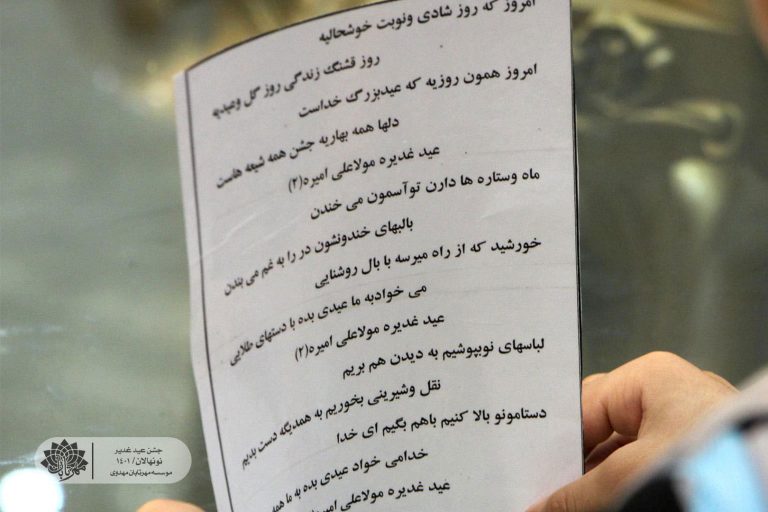 امروز که روز شادی ونوبت خوشحالیه
روز قشنگ زندگی روز گل وعیدیه
امروز همون روزیه که عیدبزرگ خداست
دلها همه بهاریه جشن همه شیعه هاست
عید غدیره مولاعلی امیره(۲)
ماه وستاره ها دارن توآسمون می خندن
بالبهای خندونشون در را به غم می بندن
خورشید که از راه میرسه با بال روشنایی
می خوادبه ما عیدی بده با دستهای طلایی
عید غدیره مولاعلی امیره(۲)
لباسهای نوبپوشیم به دیدن هم بریم
نقل وشیرینی بخوریم به همدیگه دست بدیم
دستامونو بالا کنیم باهم بگیم ای خدا
خدامی خواد عیدی بده به ما همه
عید غدیره مولاعلی
جشن عید غدیر
نونهالان/ ۱۴۰۱
موسسه مهرتابان مهدوی